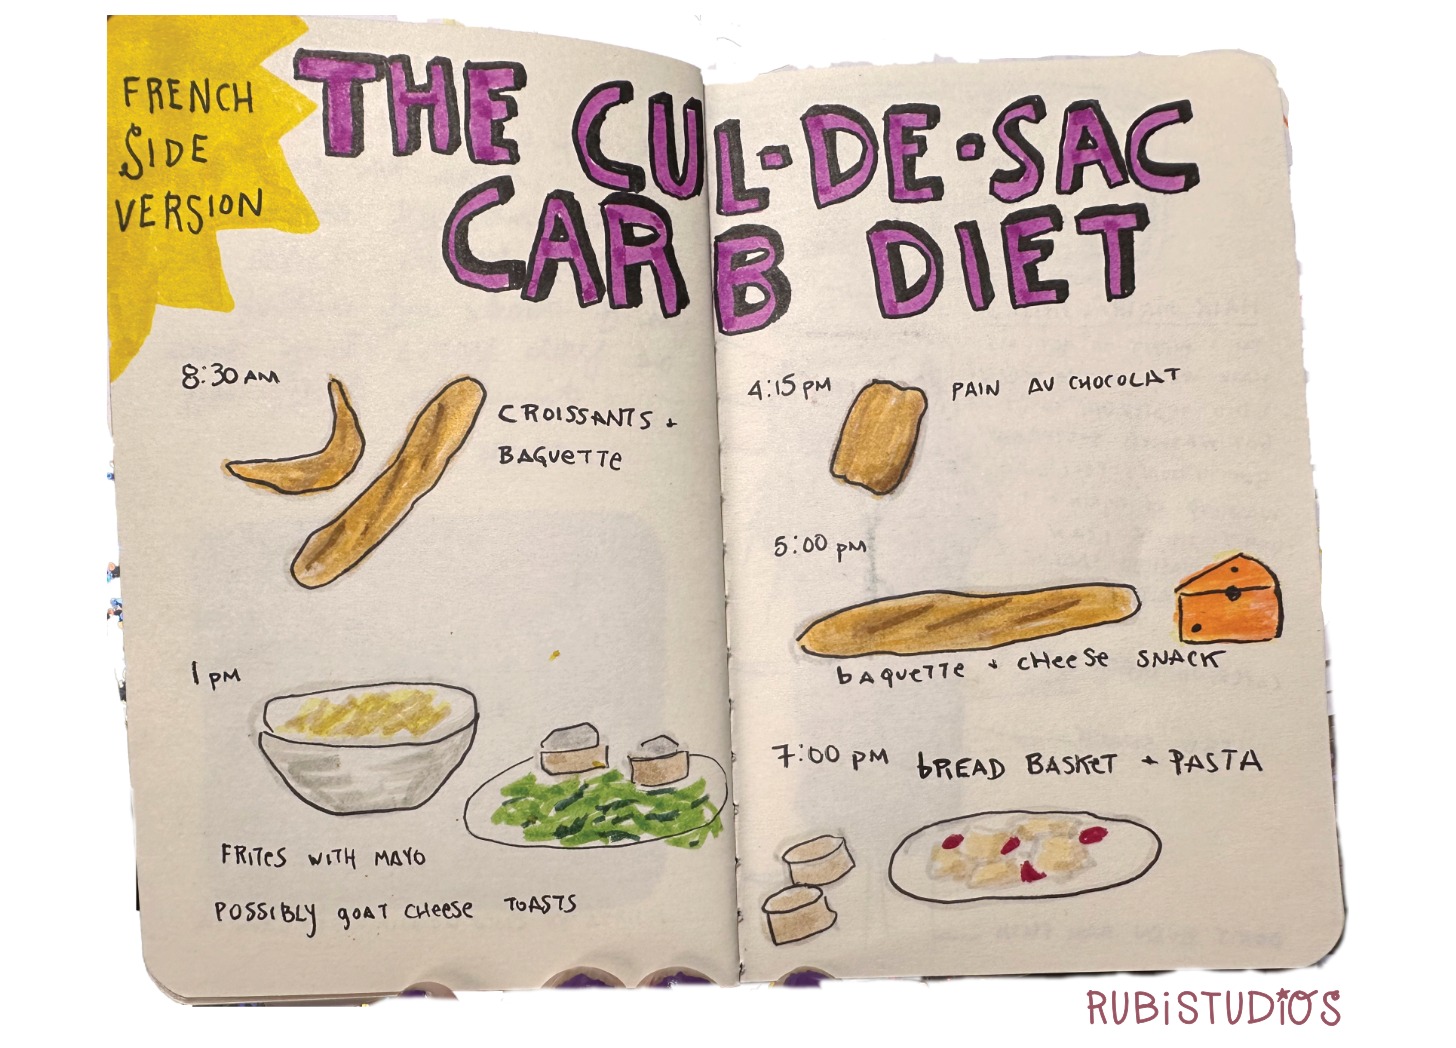 FRENCH
SIDE
VERSION
THE CUL-DE-SAC
CARB DIET
8:30 AM
CROISSANTS +
BAGUETTE
1 PM
FRITES WITH MAYO
POSSIBLY GOAT CHEESE TOASTS
4:15 PM
PAIN AU CHOCOLAT
5:00 PM
BAGUETTE + CHEESE SNACK
7:00 PM
BREAD BASKET + PASTA
RUBISTUDIOS